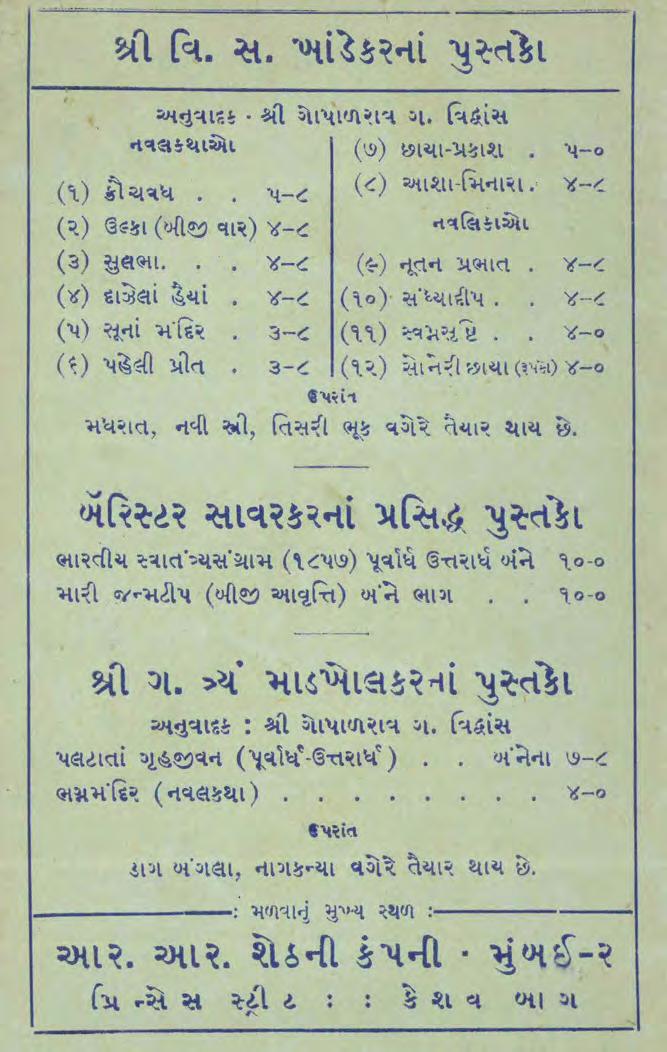 શ્રી વિ. સ. ખાંડેકરનાં પુસ્તકો
અનુવાદક · શ્રી ગોપાળરાવ ગ. વિદ્વાંસ
નવલકથાઓ
(૧) ક્રૌંચવધ . . ૫-૮
(૨) ઉલ્કા (બીજી વાર) ૪-૮
(૩) સુલભા. . . ૪-૮
(૪) દાઝેલાં હૈયાં . ૪-૮
(૫) સૂનાં મંદિર . ૩-૮
(૬) પહેલી પ્રીત . ૩-૮
(૭) છાયા-પ્રકાશ . ૫-૦
(૮) આશા-મિનારા. ૪-૮
નવલિકાઓ
(૯) નૂતન પ્રભાત . ૪-૮
(૧૦) સંધ્યાદીપ . . ૪-૮
(૧૧) સ્વપ્નસૃષ્ટિ . ૪-૦
(૧૨) સોનેરી છાયા (રૂપકો) ૪-૦
ઉપરાંત
મધરાત, નવી સ્ત્રી, તિસરી ભૂક વગેરે તૈયાર થાય છે.
બૅરિસ્ટર સાવરકરનાં પ્રસિદ્ધ પુસ્તકો
ભારતીય સ્વાતંત્ર્યસંગ્રામ (૧૮૫૭) પૂર્વાર્ધ ઉત્તરાર્ધ બંને ૧૦-૦
મારી જન્મટીપ (બીજી આવૃત્તિ) બંને ભાગ . . ૧૦-૦
શ્રી ગ. ત્ર્યં માડખોલકરનાં પુસ્તકો
અનુવાદક : શ્રી ગોપાળરાવ ગ. વિદ્વાંસ
પલટાતાં ગૃહજીવન (પૂર્વાર્ધ-ઉત્તરાર્ધ) . . બંનેના ૭-૮
ભગ્નમંદિર (નવલકથા) . . . . . . . . ૪-૦
ઉપરાંત
ડાગ બંગલા, નાગકન્યા વગેરે તૈયાર થાય છે.
: મળવાનું મુખ્ય સ્થળ :
આર. આર. શેઠની કંપની · મુંબઈ-૨
પ્રિન્સેસ સ્ટ્રીટ : : કેશવ બાગ